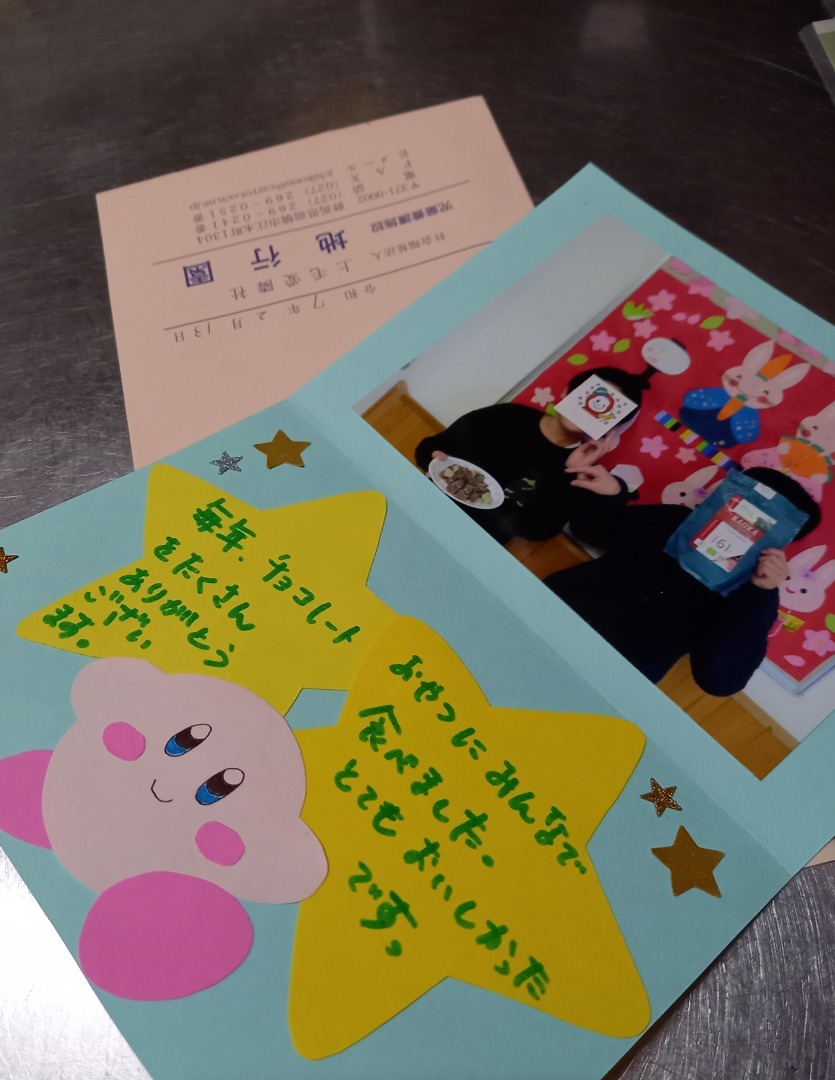 毎年、チョコレート
をたくさん
ありがとう
ござい
ます。
おやつにみんなで
食べました。
とてもおいしかった
です。
令和7年2月13日
社会福祉法人 上毛愛隣社
児童養護施設 地行園
〒371-0002 群馬県前橋市江木町1304
電話 (027) 269-0241番
FAX (027) 269-0251番
Eメール
KAOKA
61